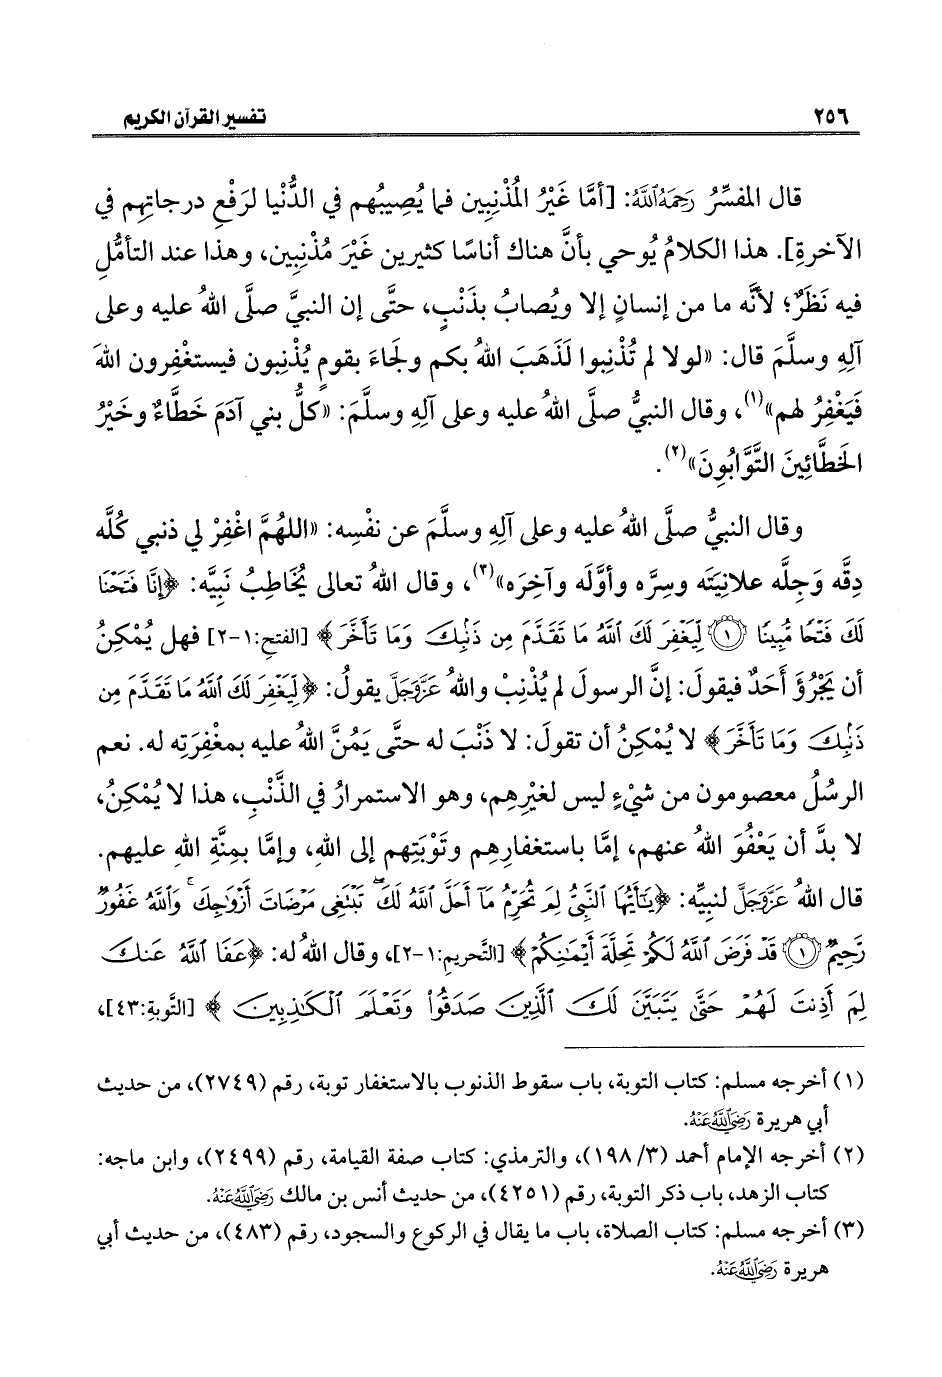 ٢٥٦ تفسير القرآن الكريم
قال المفسِّرُ رَحِمَهُ اللَّهُ: [أمَّا غَيْرُ المُذْنِبين فما يُصِيبُهم في الدُّنْيا لرَفْعِ درجاتِهم في
الآخرةِ]. هذا الكلامُ يُوحي بأنَّ هناك أناسًا كثيرين غَيْرَ مُذْنِبين، وهذا عند التأمُّلِ
فيه نَظَرٌ؛ لأنَّه ما من إنسانٍ إلا ويُصابُ بذَنْبٍ، حتَّى إن النبيَّ صلَّى اللهُ عليه وعلى
آلِهِ وسلَّمَ قال: «لولا لم تُذْنِبوا لَذَهَبَ اللهُ بكم ولجَاءَ بقومٍ يُذْنِبون فيستغفِرون اللهَ
فَيَغْفِرُ لهم»(١)، وقال النبيُّ صلَّى اللهُ عليه وعلى آلِهِ وسلَّمَ: «كلُّ بني آدَمَ خَطَّاءٌ وخَيْرُ
الخَطَّائِينَ التَّوَّابُونَ»(٢).
وقال النبيُّ صلَّى اللهُ عليه وعلى آلِهِ وسلَّمَ عن نفْسِه: «اللهُمَّ اغْفِرْ لي ذنبي كُلَّه
دِقَّه وَجِلَّه علانِيَتَه وسِرَّه وأوَّلَه وآخِرَه»(٣)، وقال اللهُ تعالى يُخَاطِبُ نَبِيَّه: ﴿إِنَّا فَتَحْنَا
لَكَ فَتْحًا مُّبِينًا ﴿١﴾ لِّيَغْفِرَ لَكَ اللَّهُ مَا تَقَدَّمَ مِن ذَنۢبِكَ وَمَا تَأَخَّرَ﴾ [الفتح:١-٢] فهل يُمْكِنُ
أن يَجْرُؤَ أَحَدٌ فيقولَ: إنَّ الرسولَ لم يُذْنِبْ واللهُ عَزَّوَجَلَّ يقولُ: ﴿لِّيَغْفِرَ لَكَ اللَّهُ مَا تَقَدَّمَ مِن
ذَنۢبِكَ وَمَا تَأَخَّرَ﴾ لا يُمْكِنُ أن تقولَ: لا ذَنْبَ له حتَّى يَمُنَّ اللهُ عليه بمغفِرَتِه له. نعم
الرسُلُ معصومون من شيْءٍ ليس لغيْرِهم، وهو الاستمرارُ في الذَّنْبِ، هذا لا يُمْكِنُ،
لا بدَّ أن يَعْفُوَ اللهُ عنهم، إمَّا باستغفارِهم وتَوْبَتِهم إلى اللهِ، وإمَّا بمِنَّةِ اللهِ عليهم.
قال اللهُ عَزَّوَجَلَّ لنبيِّه: ﴿يَٰٓأَيُّهَا ٱلنَّبِيُّ لِمَ تُحَرِّمُ مَآ أَحَلَّ ٱللَّهُ لَكَ ۖ تَبْتَغِى مَرْضَاتَ أَزْوَٰجِكَ ۚ وَٱللَّهُ غَفُورٌ
رَّحِيمٌ ﴿١﴾ قَدْ فَرَضَ ٱللَّهُ لَكُمْ تَحِلَّةَ أَيْمَٰنِكُمْ﴾ [التَّحريم:١-٢]، وقال اللهُ له: ﴿عَفَا ٱللَّهُ عَنكَ
لِمَ أَذِنتَ لَهُمْ حَتَّىٰ يَتَبَيَّنَ لَكَ ٱلَّذِينَ صَدَقُوا۟ وَتَعْلَمَ ٱلْكَٰذِبِينَ﴾ [التَّوبة:٤٣]،
(١) أخرجه مسلم: كتاب التوبة، باب سقوط الذنوب بالاستغفار توبة، رقم (٢٧٤٩)، من حديث
أبي هريرة رَضِيَ اللَّهُ عَنْهُ.
(٢) أخرجه الإمام أحمد (٣/ ١٩٨)، والترمذي: كتاب صفة القيامة، رقم (٢٤٩٩)، وابن ماجه:
كتاب الزهد، باب ذكر التوبة، رقم (٤٢٥١)، من حديث أنس بن مالك رَضِيَ اللَّهُ عَنْهُ.
(٣) أخرجه مسلم: كتاب الصلاة، باب ما يقال في الركوع والسجود، رقم (٤٨٣)، من حديث أبي
هريرة رَضِيَ اللَّهُ عَنْهُ.